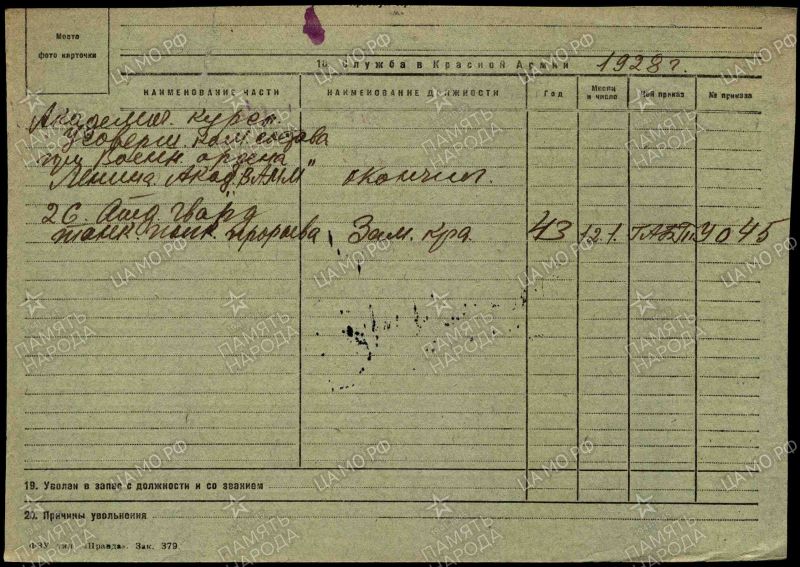 Место
фото карточки
18. Служба в Красной Армии 1928 г.
НАИМЕНОВАНИЕ ЧАСТИ НАИМЕНОВАНИЕ ДОЛЖНОСТИ Год Месяц и число Чей приказ № приказа
Академич. курсы
усоверш. ком состава
при Воен. ордена
Ленина Акад. ВАММ" окончил.
26. Отд. гвард
танк. полк. прорыва Зам. к-ра 43 12.1. ГАБТУ 045
19. Уволен в запас с должности и со званием
20. Причины увольнения
ФЗУ тип. «Правда». Зак. 379
ЦАМО.РФ
ПАМЯТЬ НАРОДА